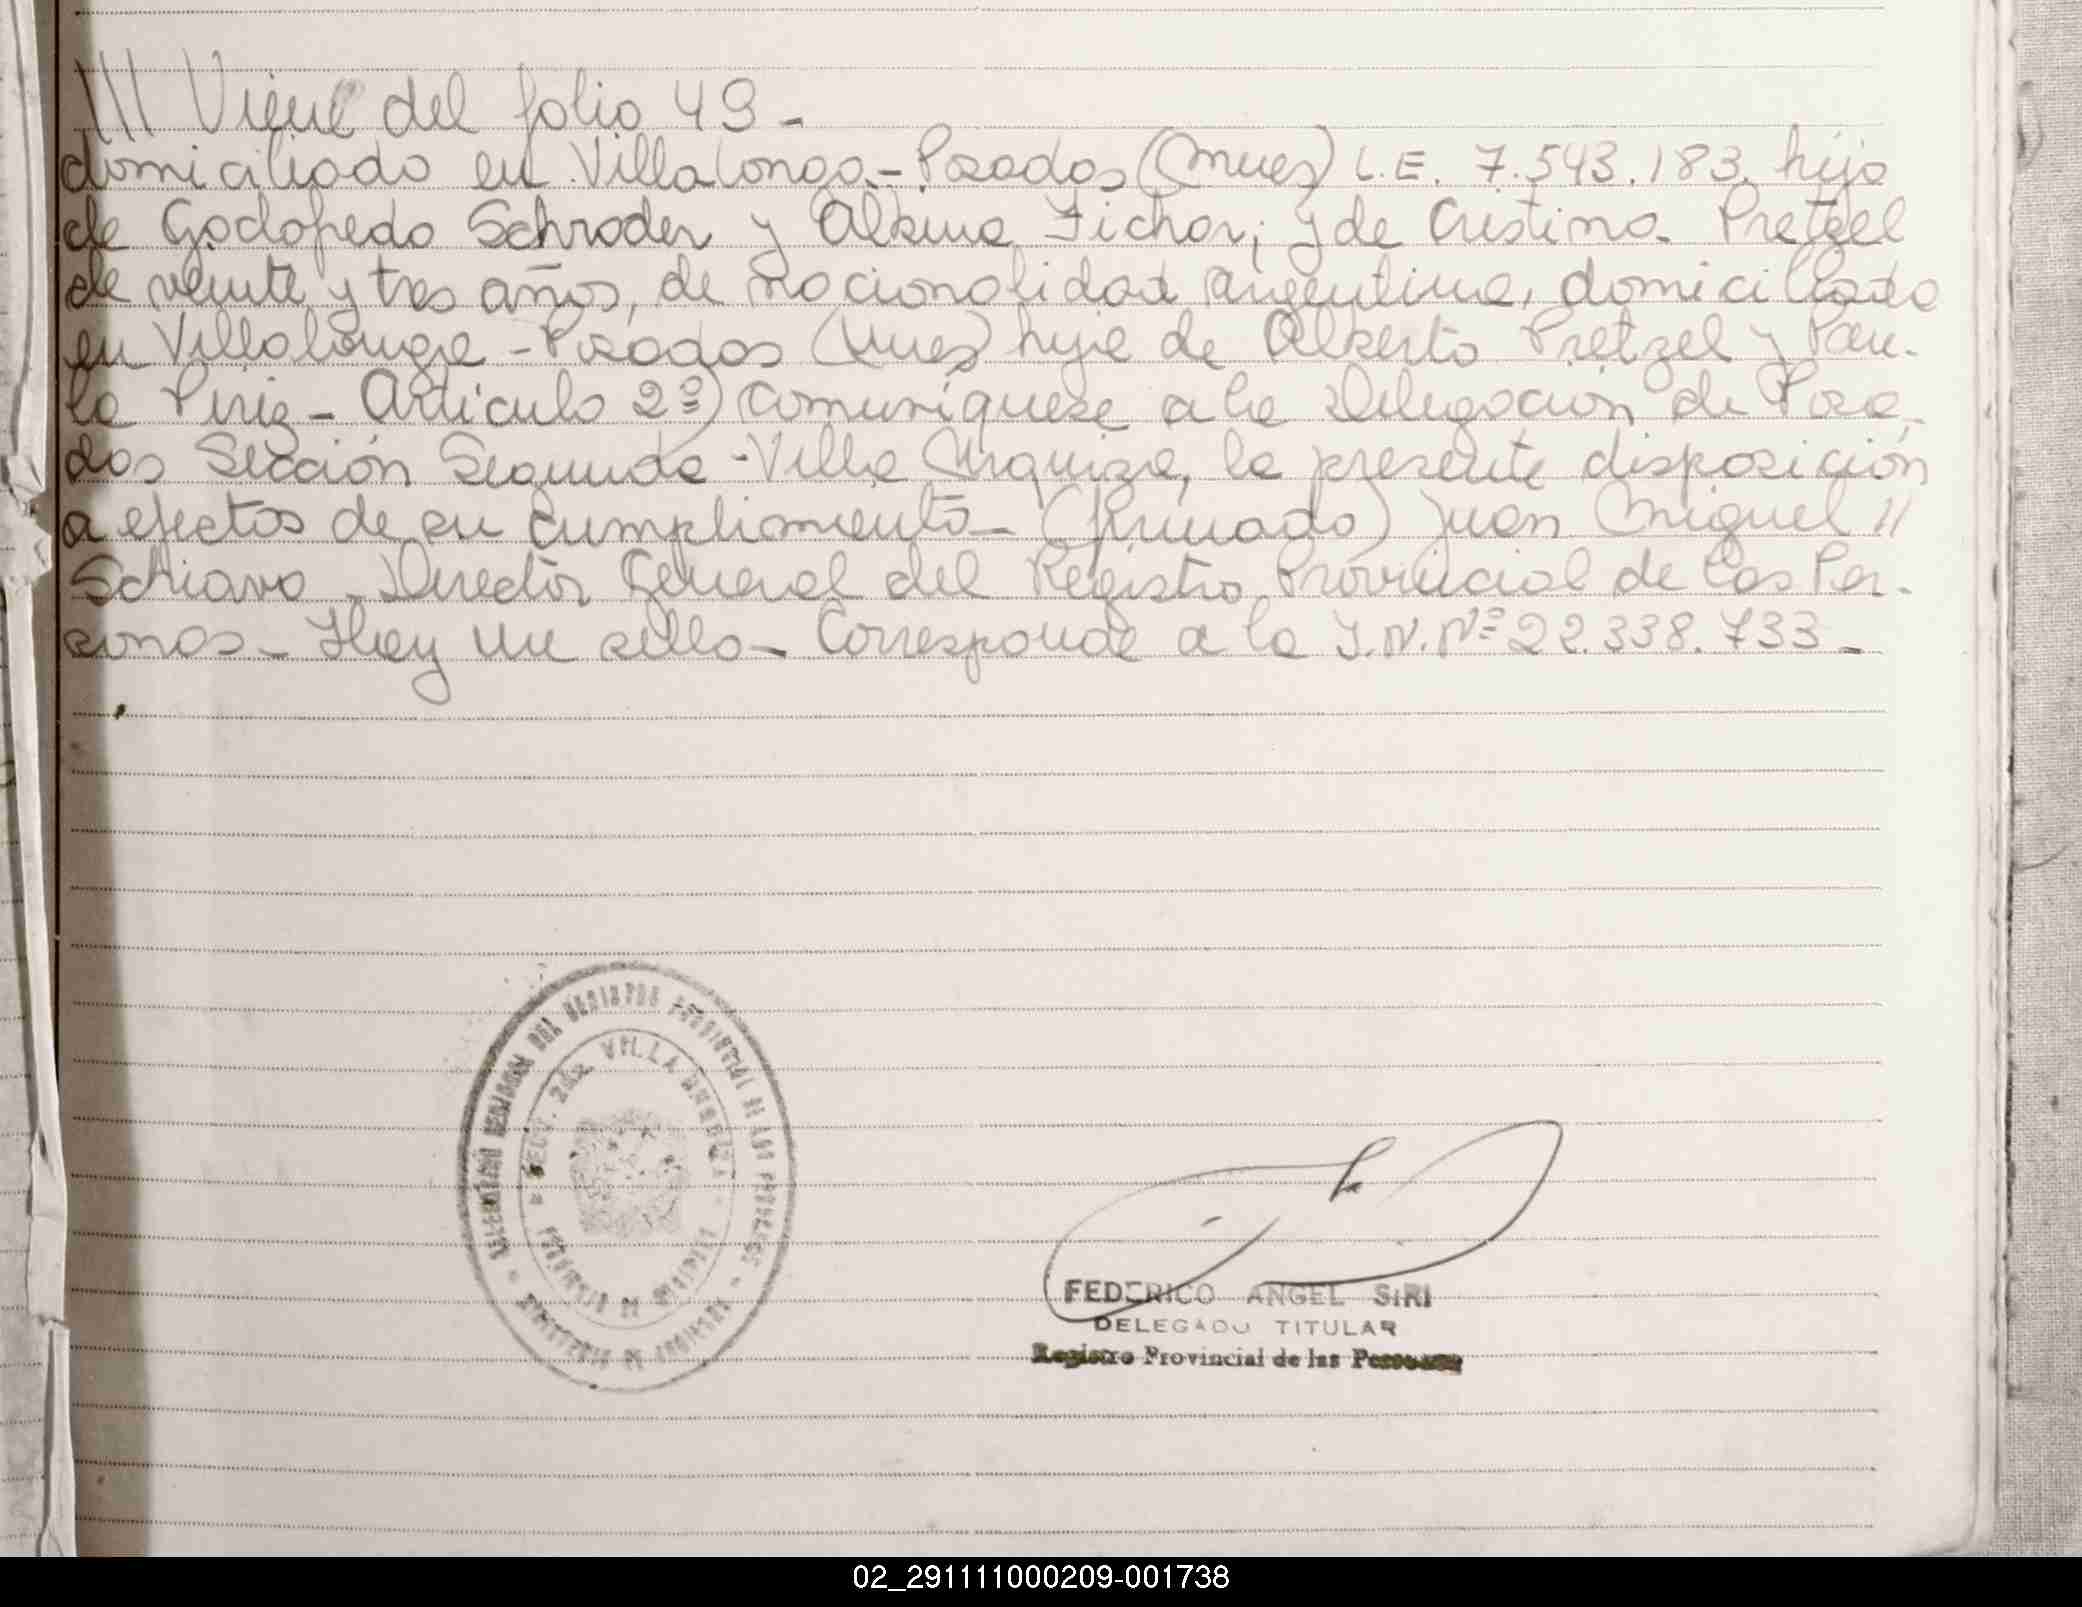 /// Viene del folio 49 -
domiciliado en Villalonga - Posadas (Mnes) L.E. 7.543.183, hijo
de Godofredo Schroder y Albina Fichor; y de Cristina Pretzel
de veinte y tres años, de nacionalidad argentina, domiciliada
en Villalonga - Posadas (Mnes) hija de Alberto Pretzel y Pau-
la Piriz - Articulo 2º) Comuníquese a la Delegación de Posa-
das Sección Segunda - Villa Urquiza, la presente disposición
a efectos de su cumplimiento - (firmado) Juan Miguel //
Schiavo - Director General del Registro Provincial de las Per-
sonas - Hay un sello - Corresponde a la I.N.Nº 22.338.733 -
DEL REGISTRO PROVINCIAL DE LAS PERSONAS
SECC. 2da. VILLA URQUIZA
PROVINCIA DE MISIONES
MINISTERIO DE GOBIERNO
FEDERICO ANGEL SIRI
DELEGADO TITULAR
Registro Provincial de las Personas
02_291111000209-001738